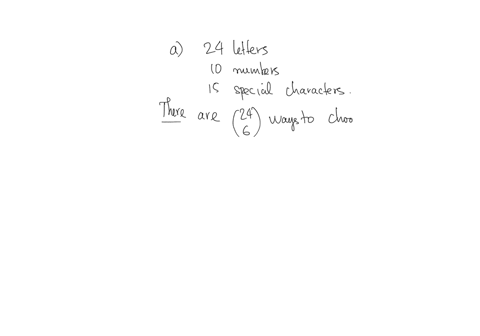 a) 24 letters
10 numbers
15 special characters.
There are (24 6) ways to choo